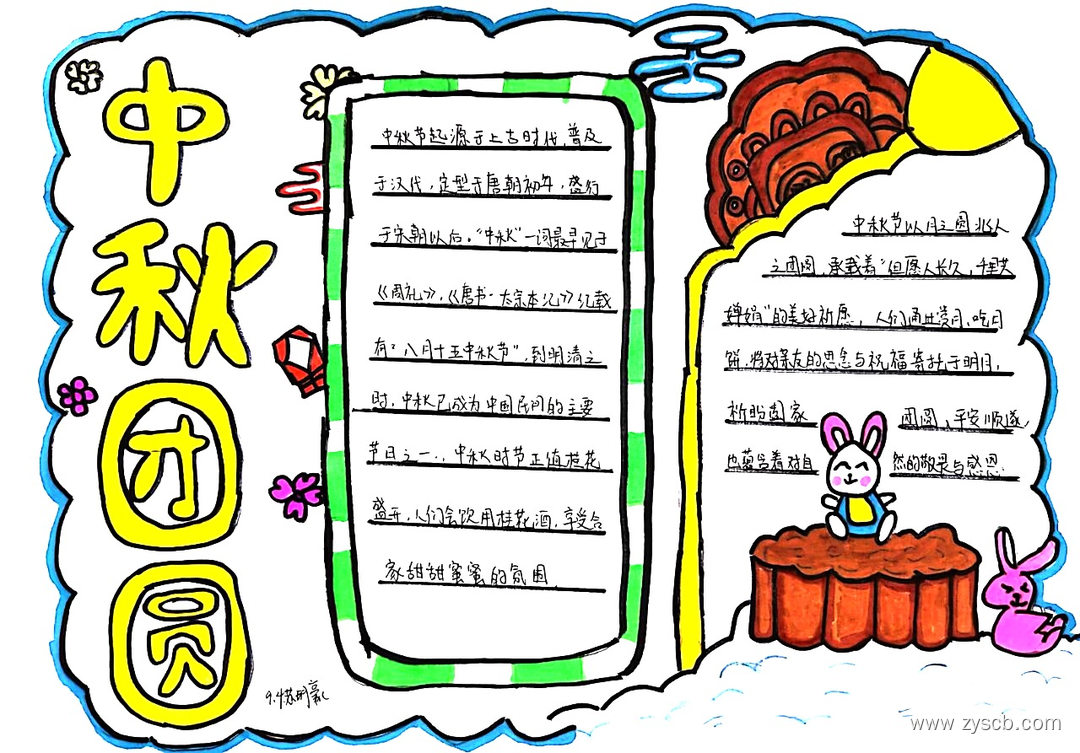 中秋团圆
中秋节起源于上古时代，普及
于汉代，定型于唐朝初年，盛行
于宋朝以后。“中秋”一词最早见于
《周礼》，《唐书·太宗本记》记载
有“八月十五中秋节”，到明清之
时，中秋已成为中国民间的主要
节日之一.，中秋时节正值桂花
盛开，人们会饮用桂花酒，享受合
家甜甜蜜蜜的氛围
中秋节以月之圆兆人
之团圆，承载着“但愿人长久，千里共
婵娟”的美好祈愿，人们通过赏月、吃月
饼，将对亲友的思念与祝福寄托于明月，
祈盼阖家团圆、平安顺遂，
也蕴含着对自然的敬畏与感恩.
9.4
www.zyscb.com